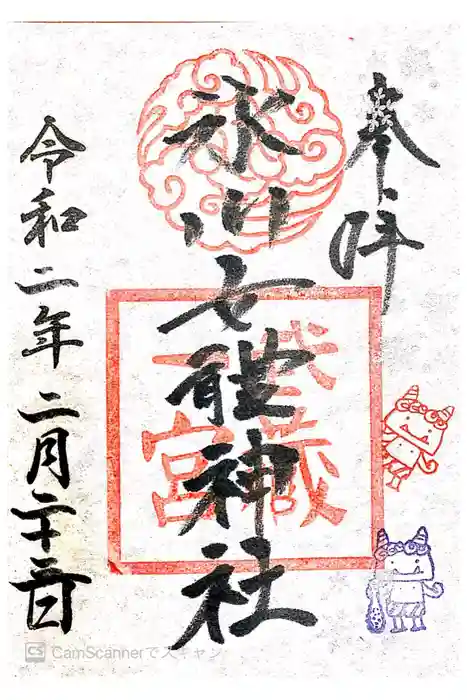 奉拝
氷川女體神社
武蔵
一宮
令和二年二月二十三日
CS CamScannerでスキャン